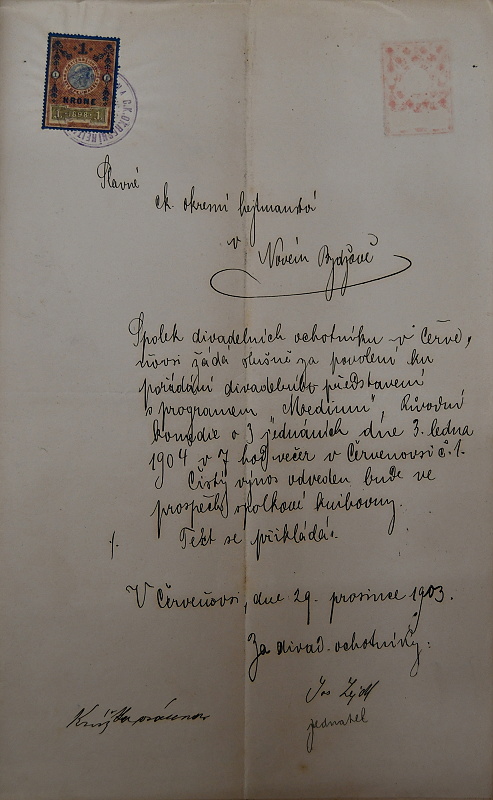 1
KRONE
1898
Slavné
ck. okresní hejtmanství
v
Novém Bydžově
Spolek divadelních ochotníku v Červe„
ňovsi žádá slušně za povolení ku
pořádání divadelního představení
s programem „Medium", původní
komedie o 3 jednáních dne 3. ledna
1904 v 7 hod večer v Červenovsi č. 1.
Čistý výnos odveden bude ve
prospěch spolkové knihovny.
Text se přikládá.
V Červeňovsi, dne 29. prosince 1903.
Za divad. ochotníky:
Jos
jednatel